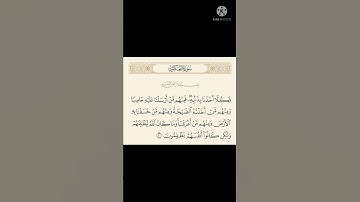 سورة العنكبوت
فكلا أخذنا بذنبه فمنهم من أرسلنا عليه حاصبا
ومنهم من أخذته الصيحة ومنهم من خسفنا به
الأرض ومنهم من أغرقنا وما كان الله ليظلمهم
ولكن كانوا أنفسهم يظلمون